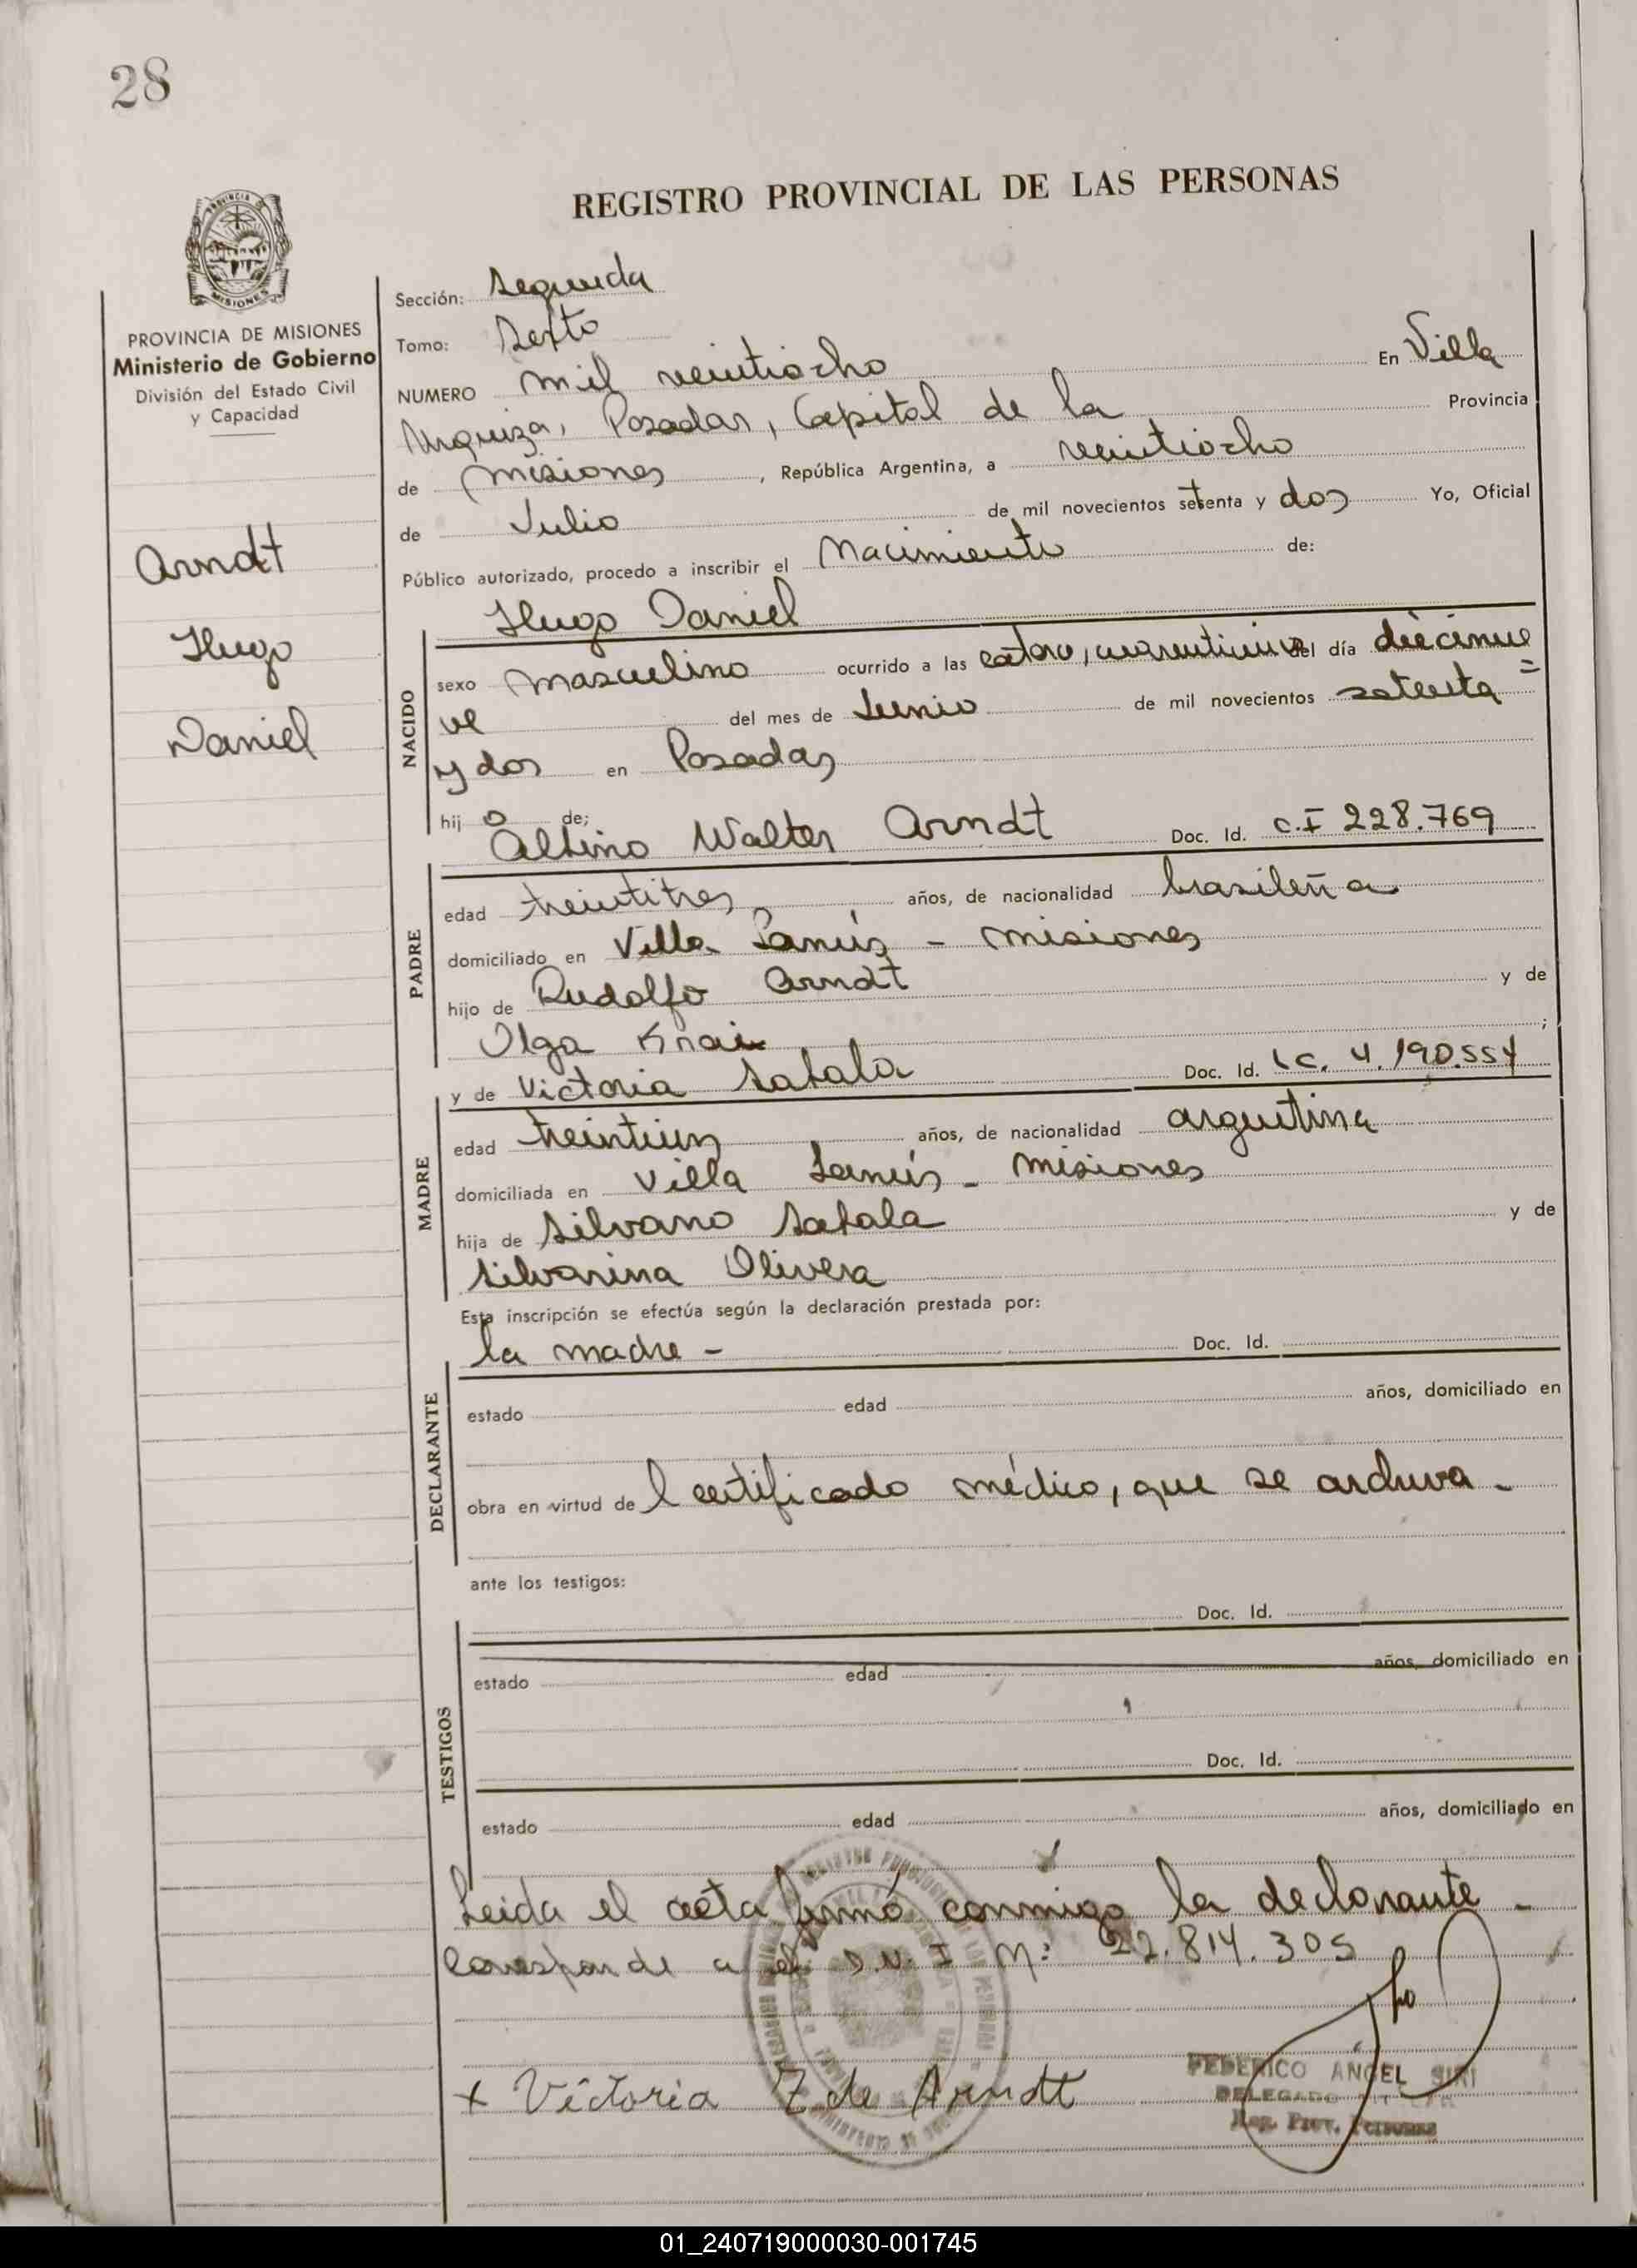 28
REGISTRO PROVINCIAL DE LAS PERSONAS
PROVINCIA DE MISIONES
Ministerio de Gobierno
División del Estado Civil
y Capacidad
Arndt
Hugo
Daniel
Sección: Segunda
Tomo: Sexto
NUMERO mil veintiocho En Villa
Urquiza, Posadas, Capital de la Provincia
de Misiones, República Argentina, a veintiocho
de Julio de mil novecientos setenta y dos Yo, Oficial
Público autorizado, procedo a inscribir el Nacimiento de:
Hugo Daniel
NACIDO
sexo Masculino ocurrido a las catorce, del día diecinue=
ve del mes de Junio de mil novecientos setenta
y dos en Posadas
hijo de;
Albino Walter Arndt Doc. Id. C.I 228.769
PADRE
edad treintitres años, de nacionalidad brasileña
domiciliado en Villa Lanús - Misiones
hijo de Rudolfo Arndt y de
Olga ;
y de Victoria Doc. Id. LC. 4.190.554
MADRE
edad treintiun años, de nacionalidad argentina
domiciliada en Villa Lanús - Misiones
hija de Silvano y de
Silvarina Olivera
Esta inscripción se efectúa según la declaración prestada por:
la madre - Doc. Id.
DECLARANTE
estado edad años, domiciliado en
obra en virtud del certificado médico, que se archiva -
ante los testigos:
Doc. Id.
TESTIGOS
estado edad años, domiciliado en
Doc. Id.
estado edad años, domiciliado en
Leida el acta firmó conmigo la declarante -
Corresponde a el D.N.I Nº 22.814.305
x Victoria Z. de Arndt
FEDERICO ANGEL SIRI
DELEGADO TITULAR
Reg. Prov. Personas
01_240719000030-001745